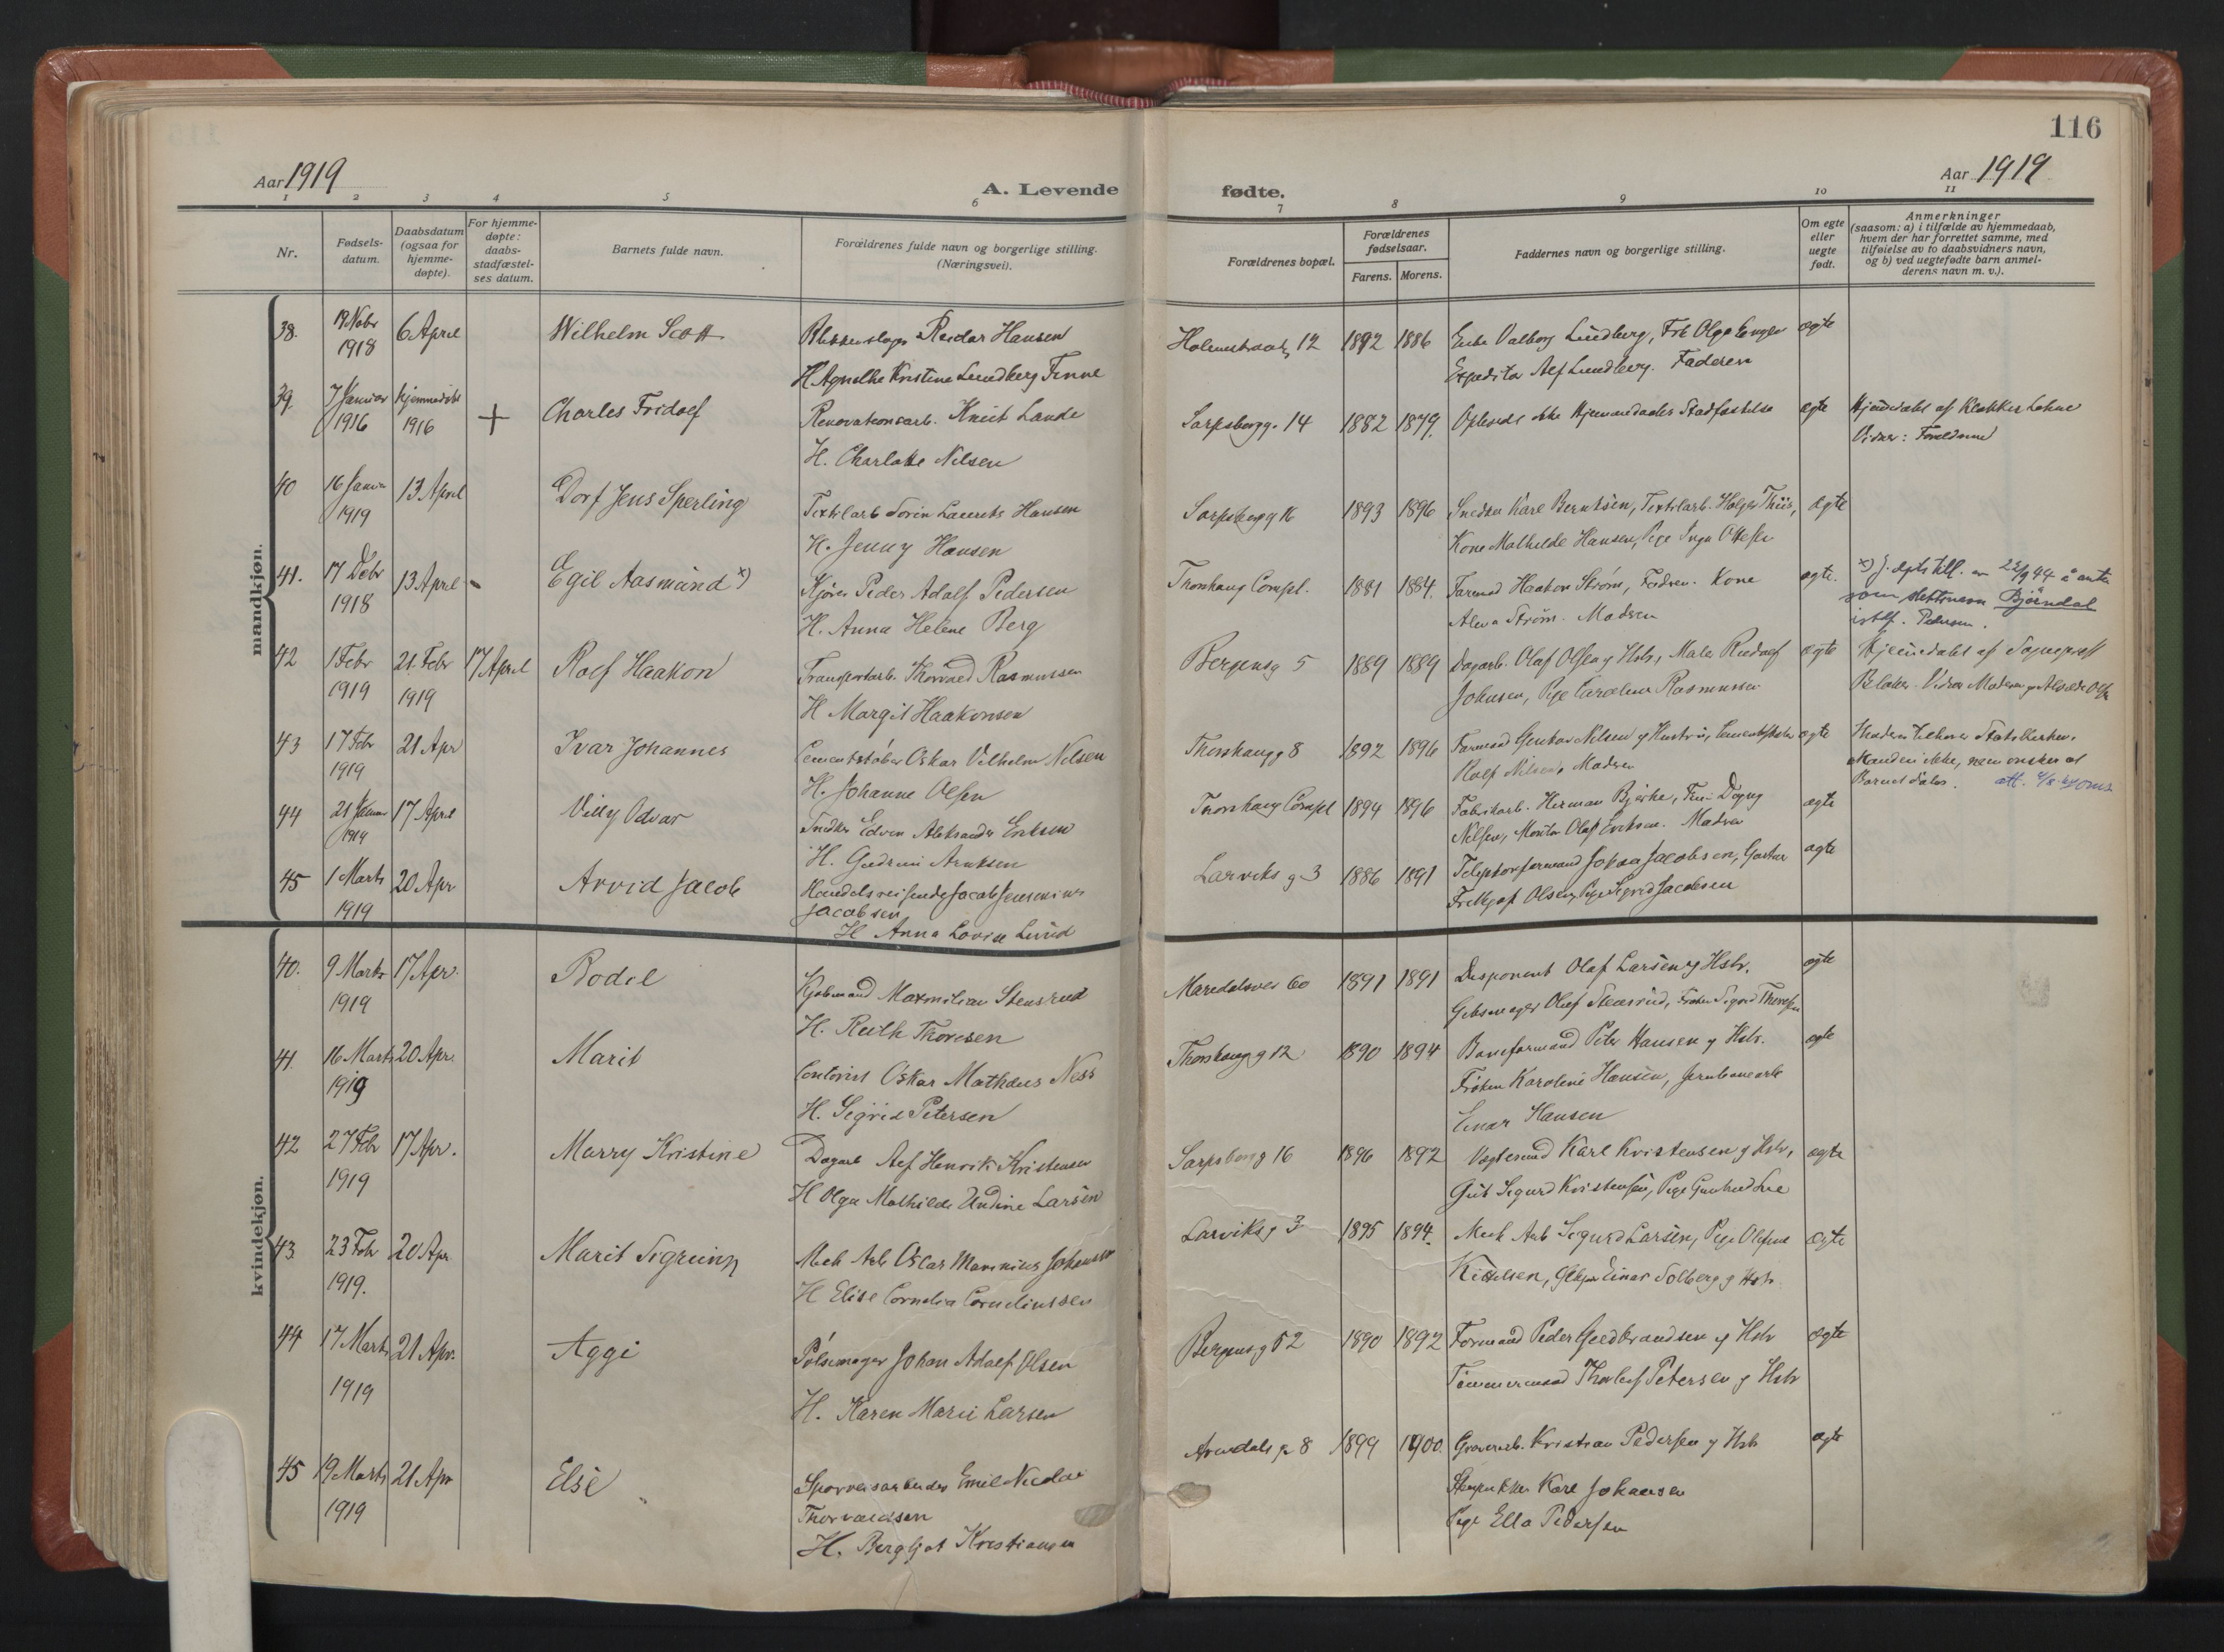 116
Aar 1919
A. Levende
fødte.
Aar 1919
1 2 3 4 5 6 7 8 9 10 11
Nr.
Fødsels-
datum.
Daabsdatum
(ogsaa for
hjemme-
døpte).
For hjemme-
døpte:
daabs-
stadfæstel-
ses datum.
Barnets fulde navn.
Forældrenes fulde navn og borgerlige stilling.
(Næringsvei).
Forældrenes bopæl.
Forældrenes
fødselsaar.
Farens. Morens.
Faddernes navn og borgerlige stilling.
Om egte
eller
uegte
født.
Anmerkninger
(saasom: a) i tilfælde av hjemmedaab,
hvem der har forrettet samme, med
tilføielse av to daabsvidners navn,
og b) ved uegtefødte barn anmel-
derens navn m. v.).
mandkjøn.
38. 19 Nobr 6 April Wilhelm Scott Blikkenslager Reidar Hansen 12 1892 1886 Valborg Lundberg, Frk Olga egte
1918 H. Agnethe Kristine Lundberg Finne Expeditør Alf Lundberg. Faderen
39. 7 Januar hjemmedøbt + Charles Fridolf Renovationsarb. Knut Lande Sarpsborgg. 14 1882 1879. Oplæst ikke Hjemmedaabs Stadfæstelse egte Hjemmedøbt af Klokker Lohne
1916 1916 H. Charlotte Nilsen Vidner: Forældrene
40 16 Januar 13 April Dorf Jens Sperling Textilarb Sorin Laurits Hansen Sarpsborgg 16 1893 1896 Snedker Karl Berntsen, Textilarb. Holger Thiis, egte
1919 H. Jenny Hansen Kone Mathilde Hansen, Pige Inga Olsen
41. 17 Debr 13 April - Egil Aasmund x) Kjører Peder Adolf Pedersen Thorshaug Compl. 1881 1884. Formand Haakon Strøm, Fadren. Kone egte. x) J. dpts till. av 22/9 44 å anta
1918 H. Anna Helene Berg Strøm. Modren som slektsnavn Bjørndal
istf. Pedersen.
42 1 Febr 21. Febr 17 April Rolf Haakon Transportarb. Thorvald Rasmussen Bergensg 5 1889 1889 Dagarb. Olaf Olsen og Hstr, Maler Rudolf egte Hjemmedøbt af Sogneprest
1919 1919 H Margit Haakonsen Johnsen, Pige Caroline Rasmussen Vidner Moderen
43 17 Febr 21 Apr Ivar Johannes Cementstøber Oskar Vilhelm Nilsen Thorshaugg 8 1892 1896 Formand Gustav Nilsen og Hustru, Cementstøber egte Moderen tilhører Statskirken.
1919 H. Johanne Olsen Rolf Nilsen, Modren Manden ikke, men ønsker at
Barnet døbes.
44 21 Januar 17 April Villy Odvar Snedker Edvin Aleksander Eriksen Thorshaug Compl 1894 1896 Fabrikarb. Herman Bjerke, Frk. Dagny egte
1919 H. Gudrun Arntsen Nilsen, Montør Olaf Eriksen. Modren
45 1 Marts 20 Apr Arvid Jacob Handelsreisende Jacob Jensenius Larviks g. 3 1886 1891 Telefonformand Johan Jacobsen, Gartner egte
1919 Jacobsen Fridtjof Olsen, Pige Sigrid Jacobsen
H Anna Lovise Lund
kvindekjøn.
40. 9 Marts 17 Apr. Bodil Kjøbmand Maxmilian Stensrud Maridalsvei 60 1891 1891 Disponent Olaf Larsen og Hstr. egte
1919 H. Ruth Thoresen Gibsmager Olaf Stensrud, Frøken Sigrid Thoresen
41. 16 Marts 20 Apr. Marit Contorist Oskar Mathæus Ness Thorshaugg 12 1890 1894 Baneformand Peter Hansen og Hstr. egte
1919 H. Sigrid Petersen Frøken Karoline Hansen, Jernbanearb
Einar Hansen
42 27 Febr 17 Apr. Marry Kristine Dagarb Alf Henrik Kristensen Sarpsborg g 16 1896 1892 Vægtermd Karl Kristensen og Hstr, egte
1919 H Olga Mathilde Undine Larsen Gut Sigurd Kristensen, Pige Gunhild Lie
43. 23 Febr 20 Apr Marit Sigrunn Mek Arb Oscar Marinius Johansen Larviksg 3 1895 1894. Mek Arb Sigurd Larsen, Pige Olefine egte
1919. H Elise Cornelia Corneliussen Kittelsen, Einar Solberg og Hstr.
44 17 Marts 21 Apr. Aggi Pølsemager Johan Adolf Olsen Bergensg 52 1890 1892 Formand Peder Guldbrandsen og Hstr egte
1919 H. Karen Marie Larsen Tømmermand Thorleif Petersen og Hstr
45 19 Marts 21 Apr Else Sporveisarbeider Emil Nicolai Arendals g. 8 1899 1900. Kristian Pedersen og Hstr egte
1919 Thorvaldsen Karl Johansen
H. Bergljot Kristiansen Pige Ella Pedersen